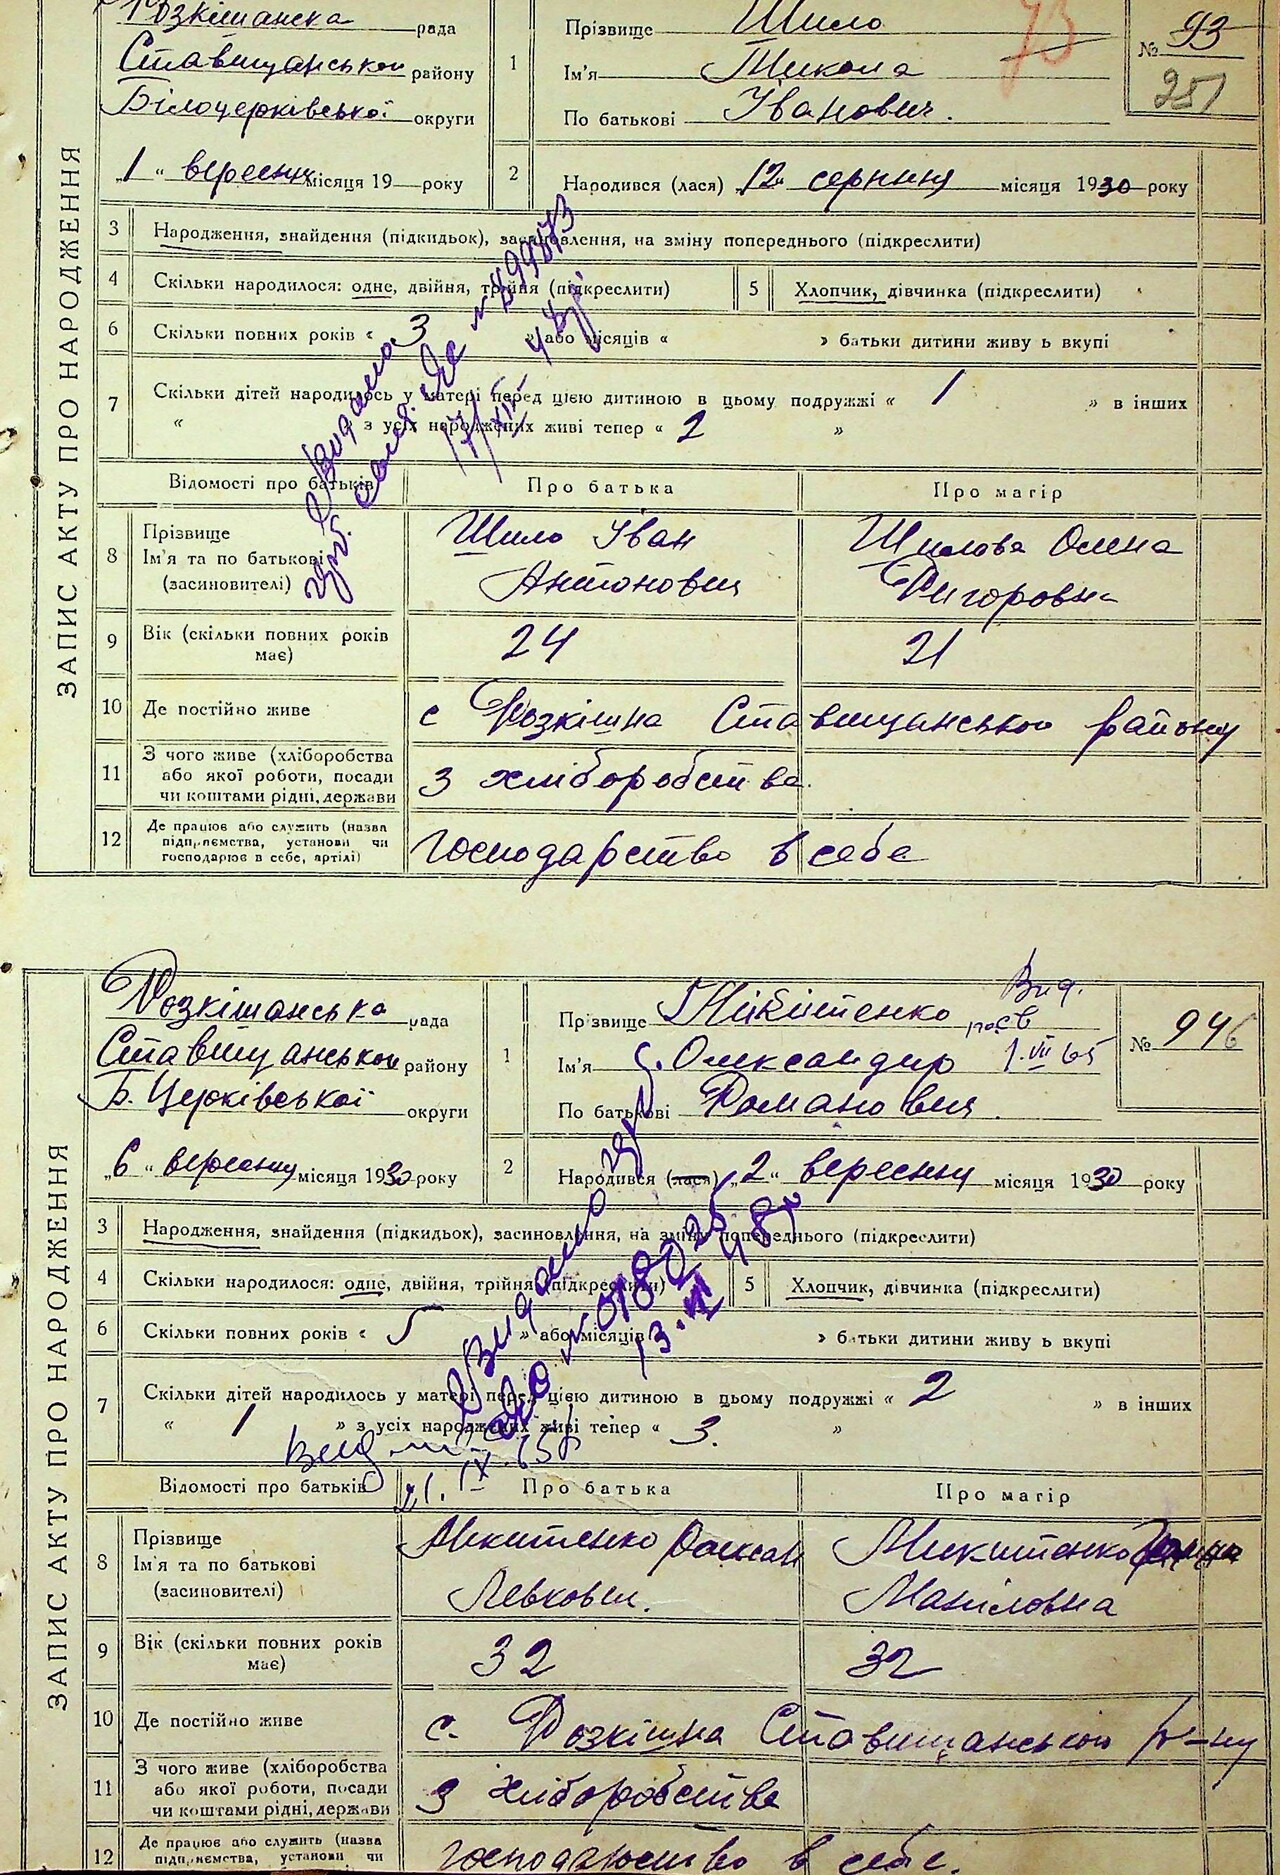 Розкішанска рада
Ставищанської району
Білоцерківської округи
„1“ вересня місяця 19 року
ЗАПИС АКТУ ПРО НАРОДЖЕННЯ
1
Прізвище Шило
Ім'я Микола
По батькові Іванович.
73
№ 93
251
2 Народився (лася) „12“ серпня місяця 1930 року
3 Народження, знайдення (підкидьок), засиновлення, на зміну попереднього (підкреслити)
4 Скільки народилося: одне, двійня, трійня (підкреслити)
5 Хлопчик, дівчинка (підкреслити)
6 Скільки повних років « 3 » або місяців « » батьки дитини живуть вкупі
7 Скільки дітей народилось у матері перед цією дитиною в цьому подружжі « 1 » в інших
« з усіх народжених живі тепер « 2 »
Видано
17/XII 48р
Відомості про батьків Про батька Про матір
8 Прізвище
Ім'я та по батькові
(засиновителі)
Шило Іван
Антонович
Шилова Олена
Григоровна
9 Вік (скільки повних років
має)
24 21
10 Де постійно живе с Розкішна Ставищанського району
11 З чого живе (хліборобства
або якої роботи, посади
чи коштами рідні, держави
З хліборобства.
12 Де працює або служить (назва
підприємства, установи чи
господарює в себе, артілі)
господарство в себе
Розкішанська рада
Ставищанської району
Б. Церківської округи
„6“ вересня місяця 1930 року
ЗАПИС АКТУ ПРО НАРОДЖЕННЯ
1
Прізвище Мікітенко
Ім'я Олександир
По батькові Романович.
Вид.
св
1.VII 65
№ 946
2 Народився (лася) „2“ вересня місяця 1930 року
3 Народження, знайдення (підкидьок), засиновлення, на зміну попереднього (підкреслити)
4 Скільки народилося: одне, двійня, трійня (підкреслити)
5 Хлопчик, дівчинка (підкреслити)
6 Скільки повних років « 5 » або місяців » батьки дитини живуть вкупі
7 Скільки дітей народилось у матері перед цією дитиною в цьому подружжі « 2 » в інших
« 1 » з усіх народжених живі тепер « 3. »
Видано
21. IX. 65р
Відомості про батьків Про батька Про матір
8 Прізвище
Ім'я та по батькові
(засиновителі)
Микитенко Роман
Левкович.
Микитенко
Маніловна
9 Вік (скільки повних років
має)
32 32
10 Де постійно живе с. Розкішна Ставищанського р-ну
11 З чого живе (хліборобства
або якої роботи, посади
чи коштами рідні, держави
З хліборобства
12 Де працює або служить (назва
підприємства, установи чи
господарство в себе.